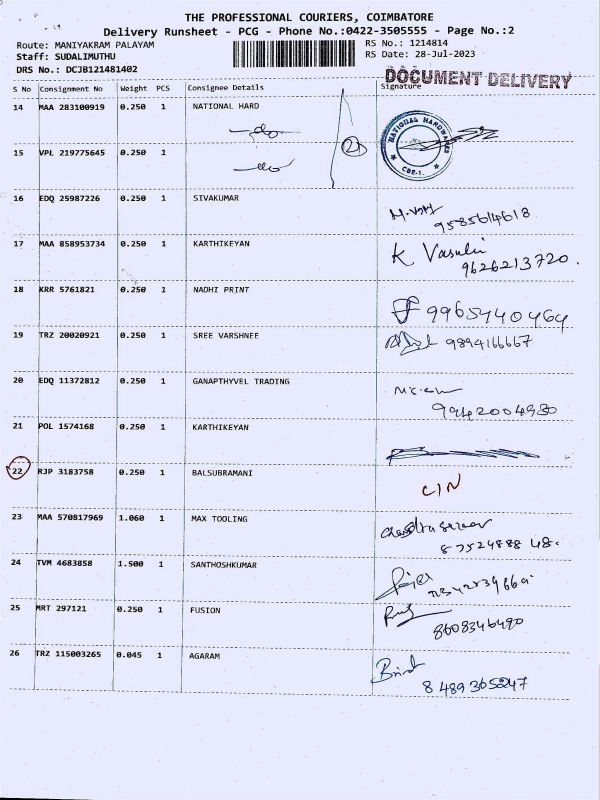 THE PROFESSIONAL COURIERS, COIMBATORE
Delivery Runsheet - PCG - Phone No.:0422-3505555 - Page No.:2
Route: MANIYAKRAM PALAYAM RS No.: 1214814
Staff: SUDALIMUTHU RS Date: 28-Jul-2023
DRS No.: DCJB121481402
DOCUMENT DELIVERY
S No Consignment No Weight PCS Consignee Details Signature
14 MAA 283100919 0.250 1 NATIONAL HARD
NATIONAL HARDWARES
CBE-1.
15 VPL 219775645 0.250 1
16 EDQ 25987226 0.250 1 SIVAKUMAR
9585614618
17 MAA 858953734 0.250 1 KARTHIKEYAN K Vasuki
9626213720.
18 KRR 5761821 0.250 1 NADHI PRINT
9965740464
19 TRZ 20020921 0.250 1 SREE VARSHNEE 9894166667
20 EDQ 11372812 0.250 1 GANAPTHYVEL TRADING
9942004930
21 POL 1574168 0.250 1 KARTHIKEYAN
22 RJP 3183758 0.250 1 BALSUBRAMANI
CIN
23 MAA 570817969 1.060 1 MAX TOOLING
87524888 48.
24 TVM 4683858 1.500 1 SANTHOSHKUMAR
25 MRT 297121 0.250 1 FUSION
8608346490
26 TRZ 115003265 0.045 1 AGARAM
8489365247